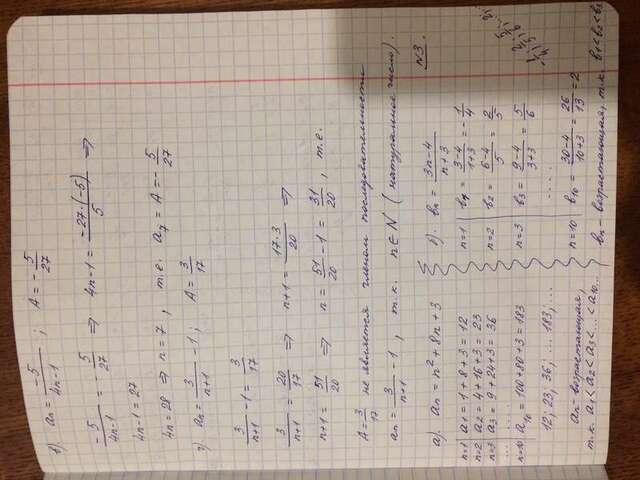 в). aₙ = -5/(4n-1) ; A = -5/27
-5/(4n-1) = -5/27 ⇒ 4n-1 = -27·(-5)/5 ⇒
4n-1 = 27
4n = 28 ⇒ n = 7, т.е. a₇ = A = -5/27
г). aₙ = 3/(n+1) - 1 ; A = 3/17
3/(n+1) - 1 = 3/17
3/(n+1) = 20/17 ⇒ n+1 = 17·3/20 ⇒
n+1 = 51/20 ⇒ n = 51/20 - 1 = 31/20, т.е.
A = 3/17 не является членом последовательности
aₙ = 3/(n+1) - 1, т.к. n∈N (натуральное число).
N3.
а). aₙ = n² + 8n + 3
n=1 | a₁ = 1+8+3 = 12
n=2 | a₂ = 4+16+3 = 23
n=3 | a₃ = 9+24+3 = 36
... ....
n=10 | a₁₀ = 100+80+3 = 183
12; 23; 36; ... 183; ...
aₙ - возрастающая,
т.к. a₁<a₂<a₃<...<a₁₀...
б). вₙ = (3n-4)/(n+3)
n=1 | в₁ = (3-4)/(1+3) = -1/4
n=2 | в₂ = (6-4)/5 = 2/5
n=3 | в₃ = (9-4)/(3+3) = 5/6
....
n=10 | в₁₀ = (30-4)/(10+3) = 26/13 = 2
-1/4; 2/5; 5/6; ...2;...
вₙ - возрастающая, т.к. в₁<в₂<в₃